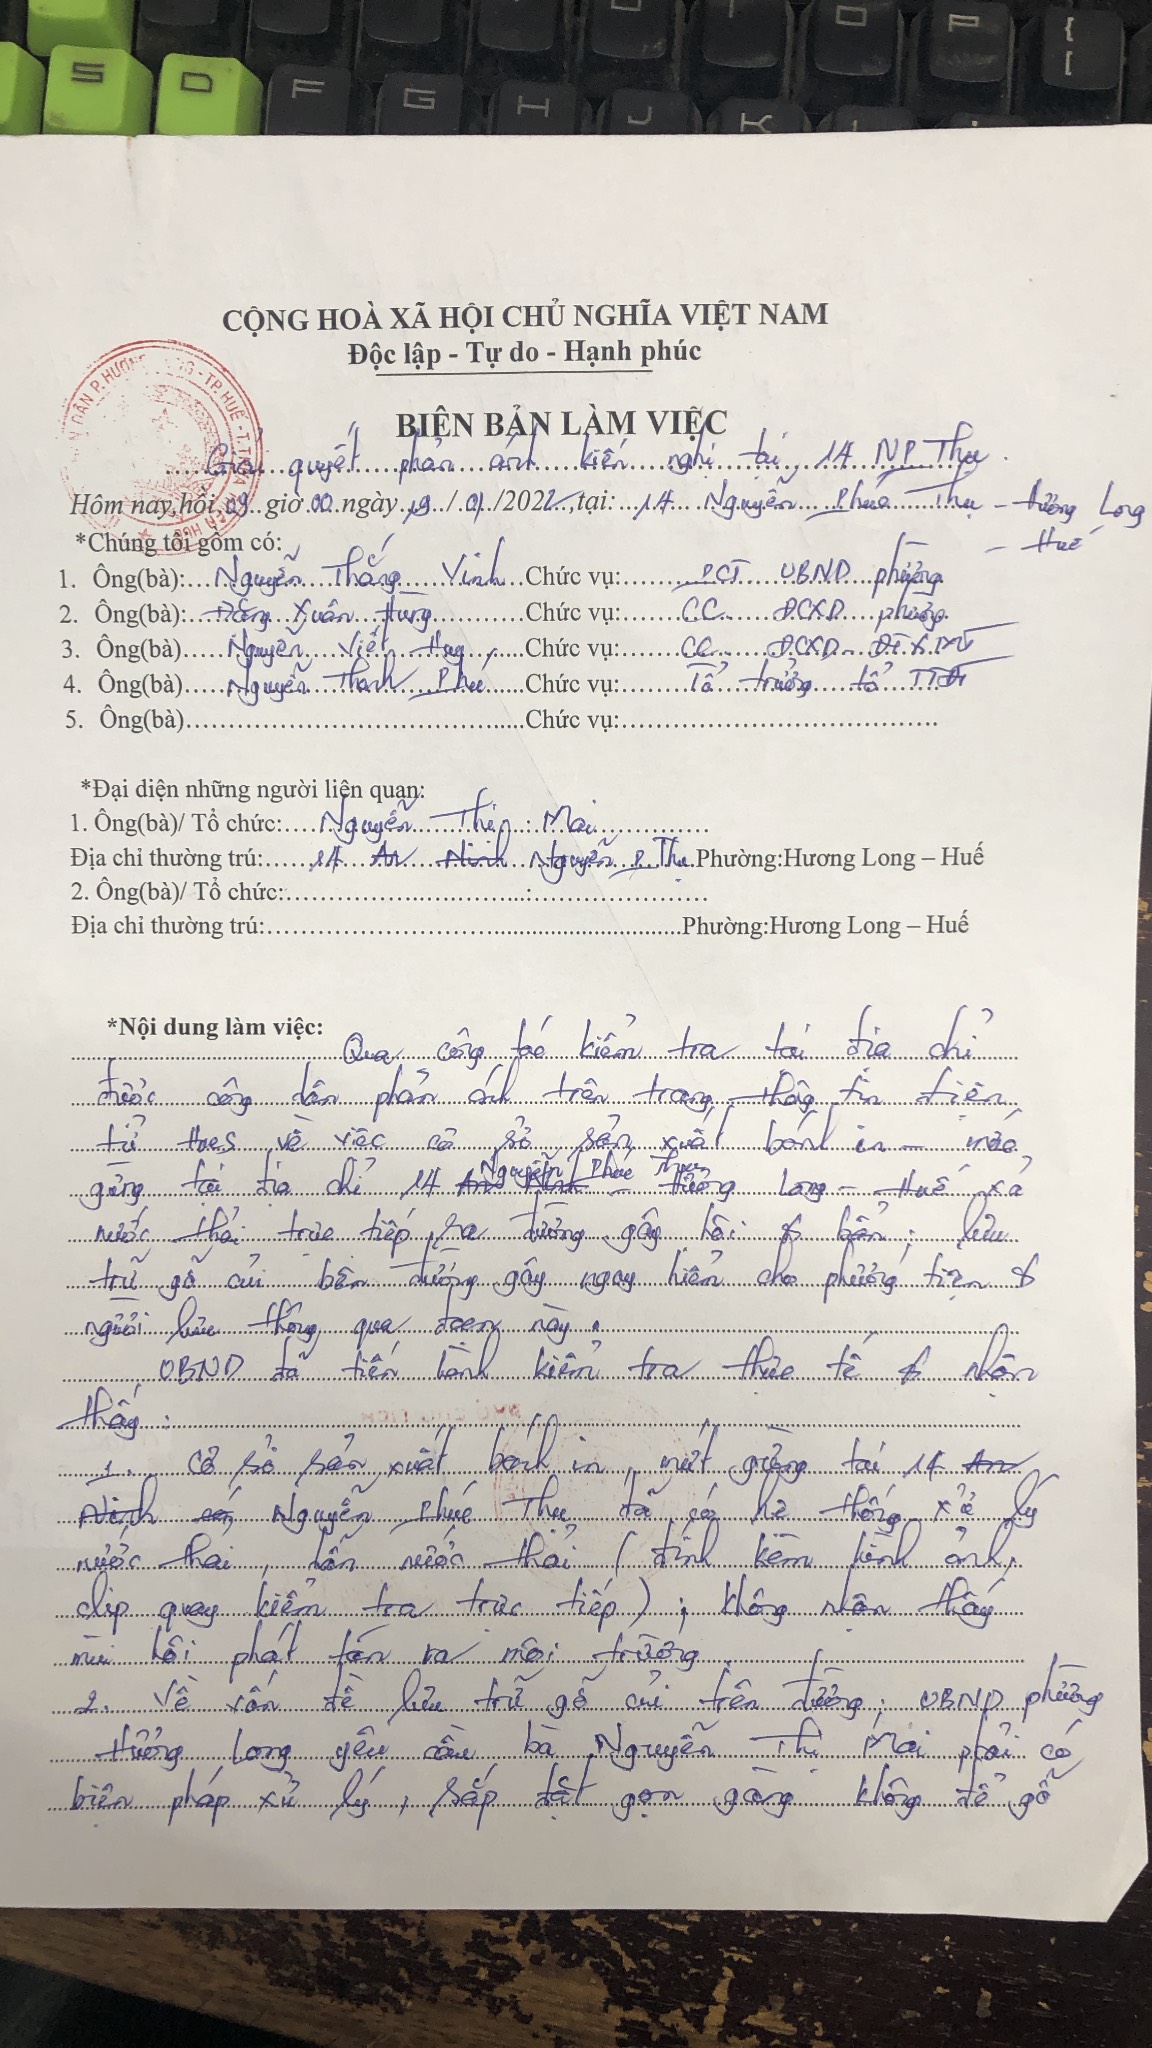 S D F G H J K O P { [
CỘNG HOÀ XÃ HỘI CHỦ NGHĨA VIỆT NAM
Độc lập - Tự do - Hạnh phúc
BIÊN BẢN LÀM VIỆC
Giải quyết phản ánh kiến nghị tại 14 NP Thụ
Hôm nay, hồi 09 giờ 00 ngày 19 / 01 /2022, tại: 14 Nguyễn Phúc Thụ - Hương Long
- Huế
*Chúng tôi gồm có:
1. Ông(bà): Nguyễn Thắng Vinh Chức vụ: PCT UBND phường
2. Ông(bà): Đặng Xuân Hùng Chức vụ: CC ĐCXD phường
3. Ông(bà) Nguyễn Viết Huy Chức vụ: CC ĐCXD
4. Ông(bà) Nguyễn Thanh Phú Chức vụ: Tổ trưởng tổ
5. Ông(bà) Chức vụ:
*Đại diện những người liên quan:
1. Ông(bà)/ Tổ chức: Nguyễn Thị : Mai
Địa chỉ thường trú: 14 An Ninh Nguyễn P. Thụ Phường:Hương Long – Huế
2. Ông(bà)/ Tổ chức: :
Địa chỉ thường trú: Phường:Hương Long – Huế
*Nội dung làm việc:
Qua công tác kiểm tra tại địa chỉ
được công dân phản ánh trên trang thông tin điện
tử HueS về việc cơ sở sản xuất bánh in - mứt
Nguyễn Phúc Thụ
gừng tại địa chỉ 14 An Ninh - Hương Long - Huế xả
nước thải trực tiếp ra đường gây hôi & bẩn; lưu
trữ gỗ củi bên đường gây nguy hiểm cho phương tiện &
người lưu thông qua đoạn này.
UBND đã tiến hành kiểm tra thực tế & nhận
thấy:
1. Cơ sở sản xuất bánh in, mứt gừng tại 14 An
Ninh có Nguyễn Phúc Thụ đã có hệ thống xử lý
nước thải, lẫn nước thải (đính kèm hình ảnh,
clip quay kiểm tra trực tiếp); không nhận thấy
mùi hôi phát tán ra môi trường.
2. Về vấn đề lưu trữ gỗ củi trên đường; UBND phường
Hương Long yêu cầu bà Nguyễn Thị Mai phải có
biện pháp xử lý, sắp đặt gọn gàng không để gỗ